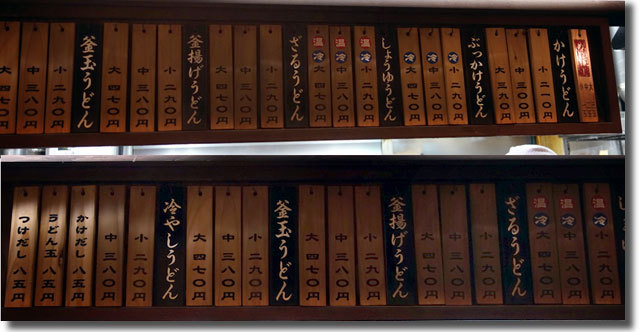 かけうどん
小 二九〇円
中 三八〇円
大 四七〇円
ぶっかけうどん
冷 小 二九〇円
冷 中 三八〇円
冷 大 四七〇円
しょうゆうどん
温 冷 小 二九〇円
温 冷 中 三八〇円
温 冷 大 四七〇円
ざるうどん
小 二九〇円
中 三八〇円
大 四七〇円
釜揚げうどん
小 二九〇円
中 三八〇円
大 四七〇円
釜玉うどん
小 二九〇円
中 三八〇円
大 四七〇円
温 冷 小 二九〇円
温 冷 中 三八〇円
温 冷 大 四七〇円
ざるうどん
小 二九〇円
中 三八〇円
大 四七〇円
釜揚げうどん
小 二九〇円
中 三八〇円
大 四七〇円
釜玉うどん
小 二九〇円
中 三八〇円
大 四七〇円
冷やしうどん
小 二九〇円
大 四七〇円
かけだし 八五円
うどん玉 八五円
つけだし 八五円